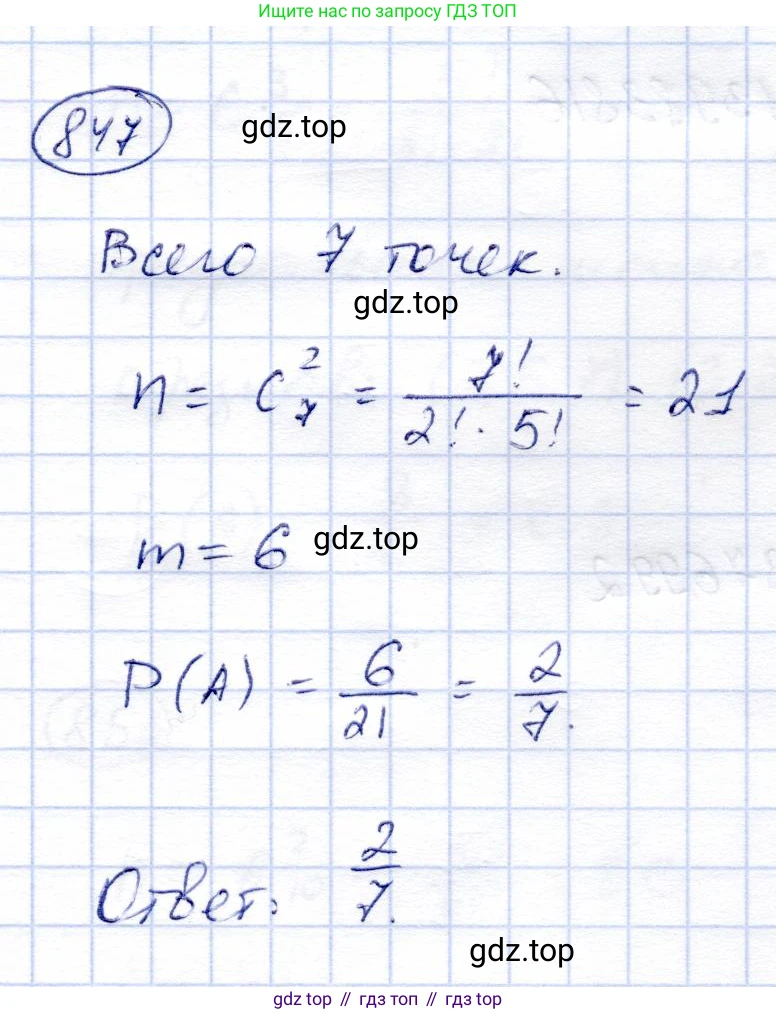 Ищите нас по запросу ГДЗ ТОП
847
gdz.top
Всего 7 точек.
gdz.top
n = C₇² = 7! / (2! · 5!) = 21
m = 6
gdz.top
P(A) = 6/21 = 2/7.
Ответ: 2/7.
gdz.top
gdz top // гдз топ // гдз top